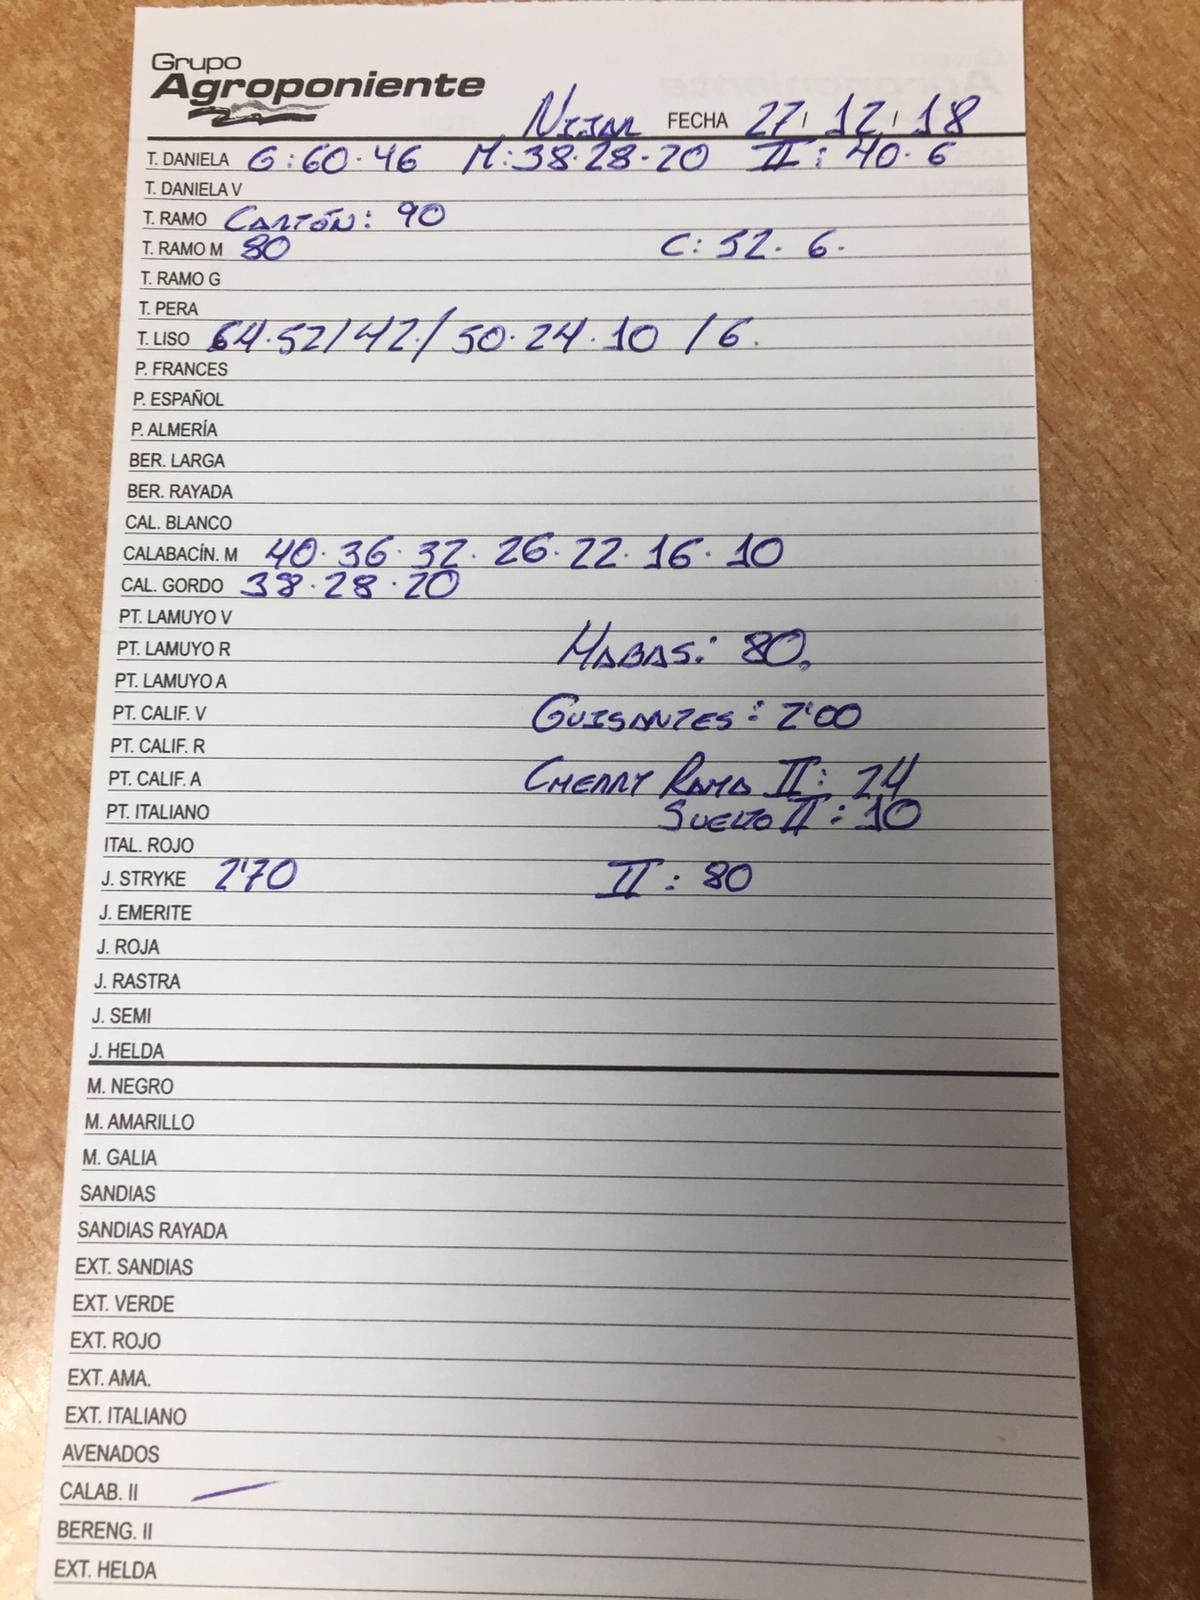 Grupo
Agroponiente
NIJAR FECHA 27/12/18
T. DANIELA G:60·46 M:38·28·20 II: 40·6
T. DANIELA V
T. RAMO CARTÓN: 90
T. RAMO M 80 C: 52· 6·
T. RAMO G
T. PERA
T. LISO 64·52/42/50·24·10 /6.
P. FRANCES
P. ESPAÑOL
P. ALMERÍA
BER. LARGA
BER. RAYADA
CAL. BLANCO
CALABACÍN. M 40·36·32·26·22·16·10
CAL. GORDO 38·28·20
PT. LAMUYO V
PT. LAMUYO R HABAS: 80.
PT. LAMUYO A
PT. CALIF. V GUISANTES: 2'00
PT. CALIF. R
PT. CALIF. A CHERRY RAMA II: 24
PT. ITALIANO SUELTO II: 10
ITAL. ROJO
J. STRYKE 2'70 II: 80
J. EMERITE
J. ROJA
J. RASTRA
J. SEMI
J. HELDA
M. NEGRO
M. AMARILLO
M. GALIA
SANDIAS
SANDIAS RAYADA
EXT. SANDIAS
EXT. VERDE
EXT. ROJO
EXT. AMA.
EXT. ITALIANO
AVENADOS
CALAB. II
BERENG. II
EXT. HELDA